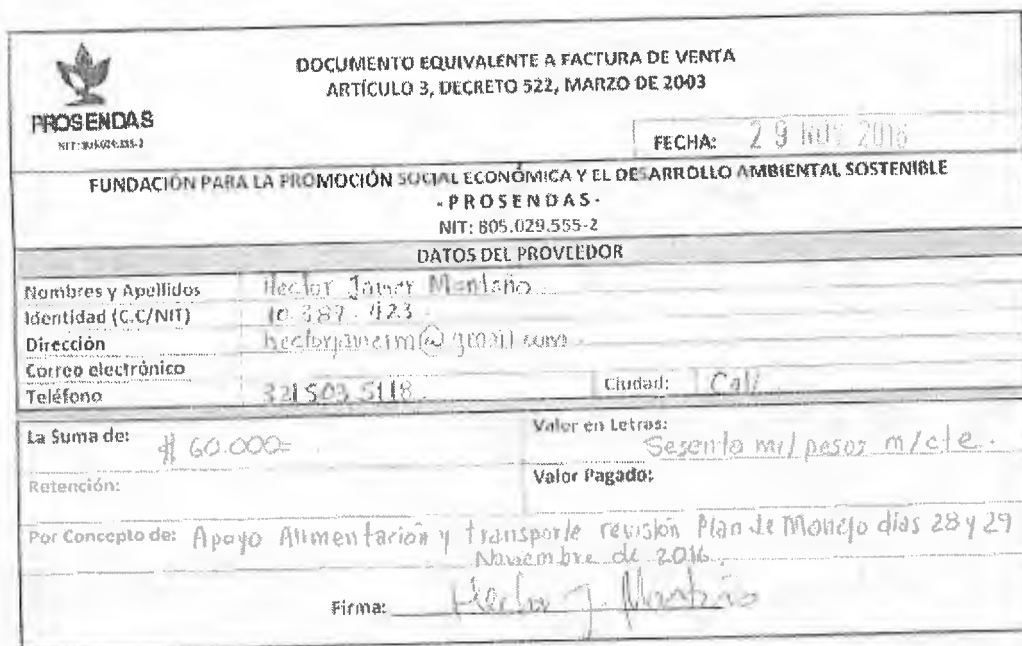 DOCUMENTO EQUIVALENTE A FACTURA DE VENTA
ARTÍCULO 3, DECRETO 522, MARZO DE 2003
PROSENDAS
FECHA: 29 NOV 2016
FUNDACIÓN PARA LA PROMOCIÓN SOCIAL ECONÓMICA Y EL DESARROLLO AMBIENTAL SOSTENIBLE
- PROSENDAS -
NIT: 805.029.555-2
DATOS DEL PROVEEDOR
Nombres y Apellidos Hector Javier Montaño
Identidad (C.C/NIT) 10.387.423
Dirección hectorjavierm@gmail.com
Correo electrónico
Teléfono 321 503 5118 Ciudad: Cali
La Suma de: $ 60.000= Valor en Letras: Sesenta mil pesos m/cte.
Retención: Valor Pagado:
Por Concepto de: Apoyo Alimentación y transporte revisión Plan de Manejo días 28 y 29
Noviembre de 2016.
Firma: Hector J. Montaño